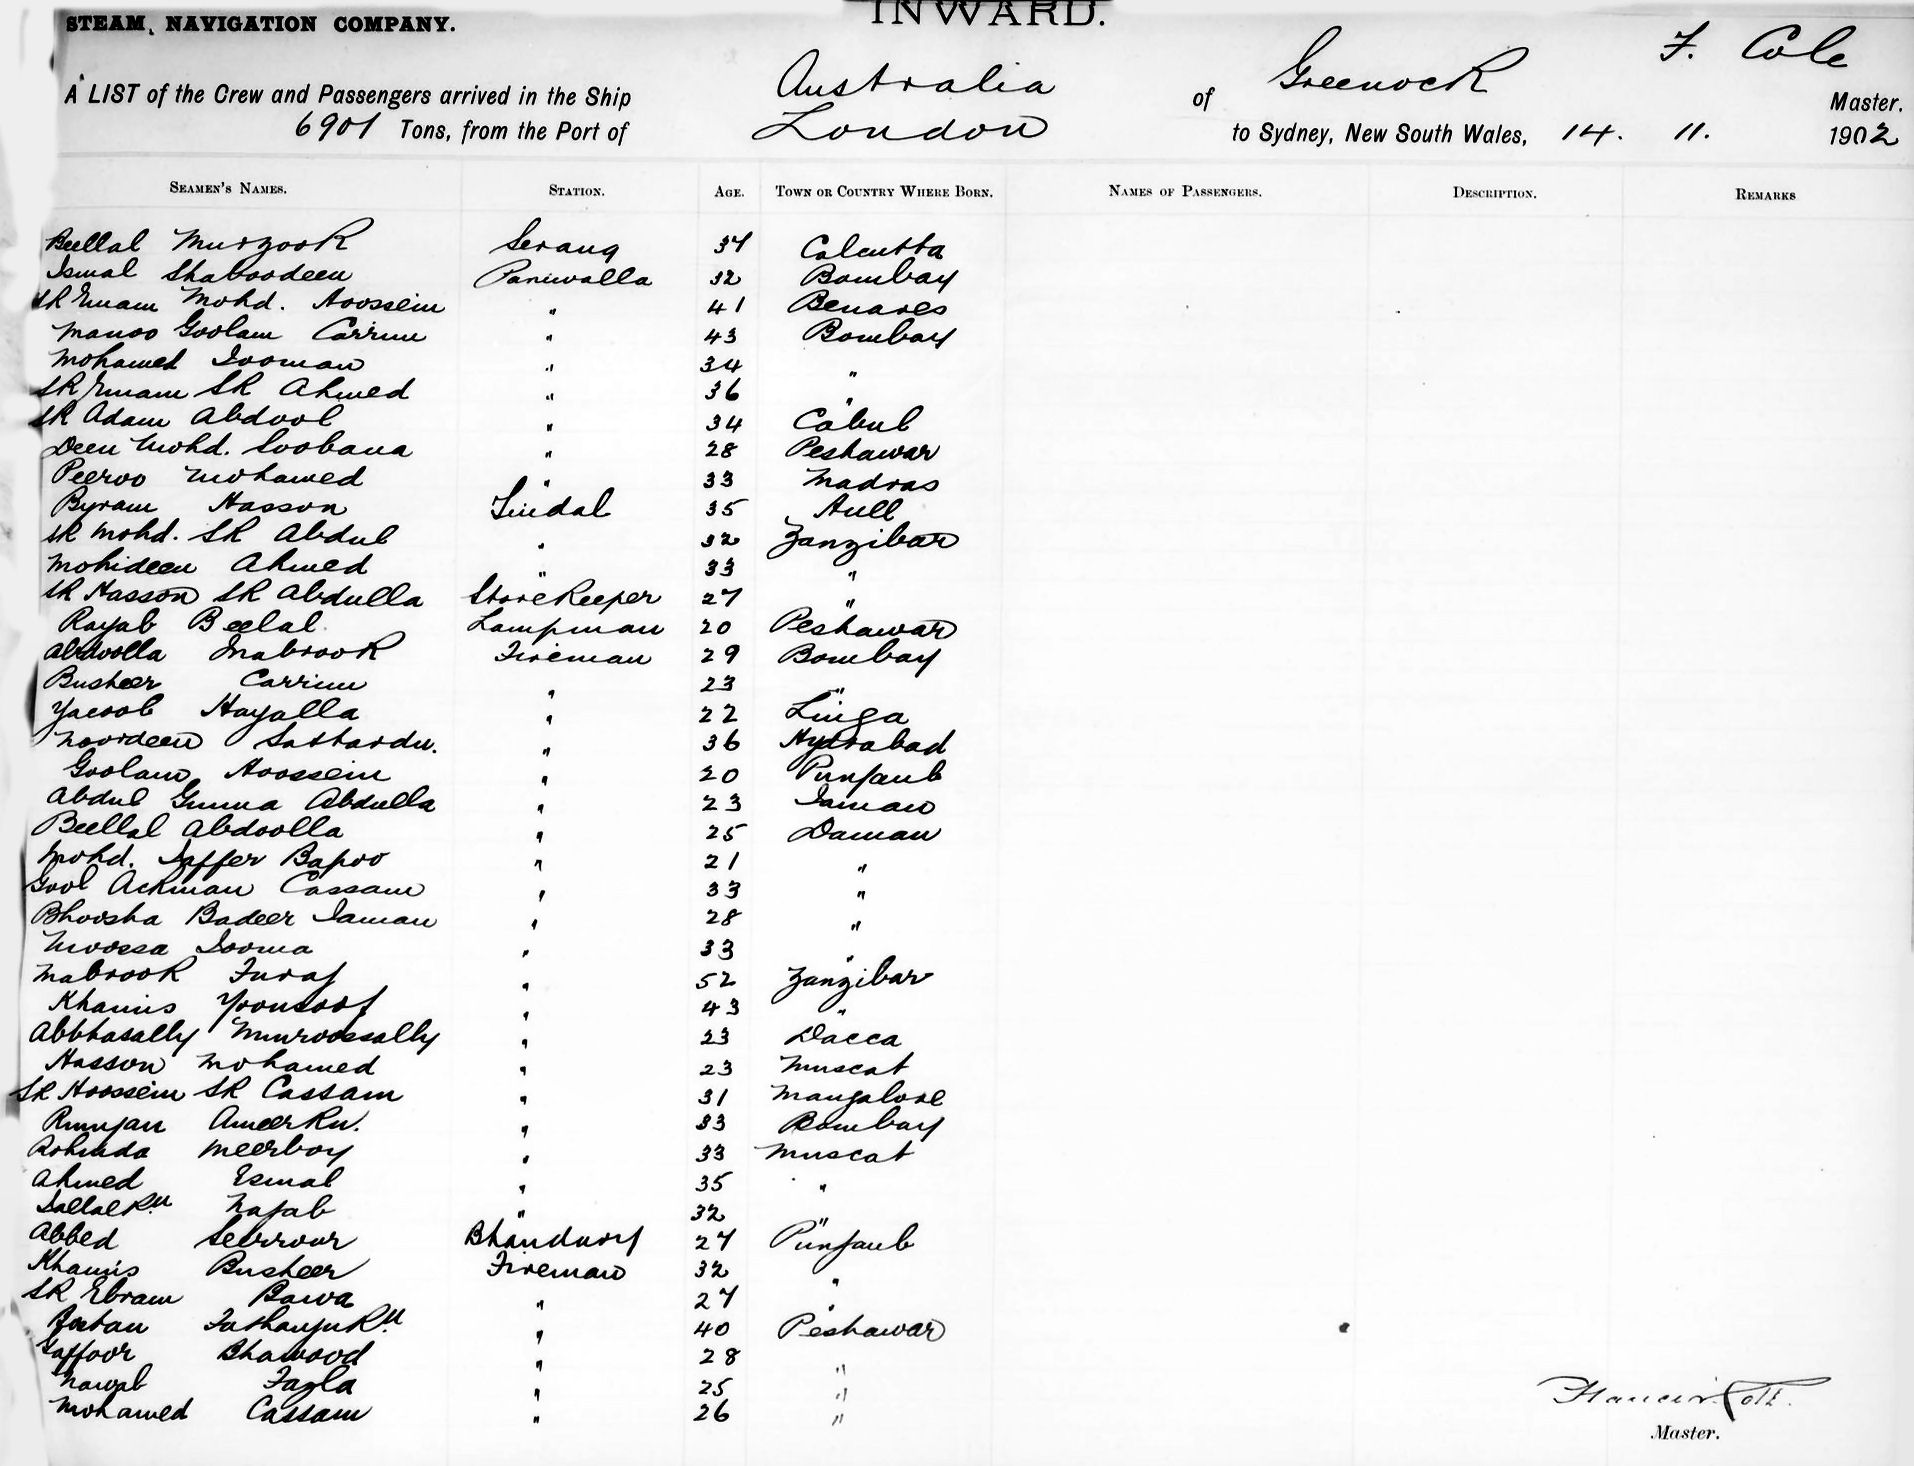 INWARD.
STEAM NAVIGATION COMPANY.
F. Cole
A LIST of the Crew and Passengers arrived in the Ship Australia of Greenock Master.
6901 Tons, from the Port of London to Sydney, New South Wales, 14. 11. 1902
SEAMEN'S NAMES. STATION. AGE. TOWN OR COUNTRY WHERE BORN. NAMES OF PASSENGERS. DESCRIPTION. REMARKS
Bellal Murzook Serang 37 Calcutta
Ismal Shaboodeen Paniwalla 32 Bombay
SK Emam Mohd. Hoossein " 41 Benares
Manoo Goolam Carrim " 43 Bombay
Mohamed Jooman " 34 "
SK Emam SK Ahmed " 36 "
SK Adam Abdool " 34 Cabul
Deen Mohd. Soobana " 28 Peshawar
Peeroo Mohamed " 33 Madras
Byram Hasson Tindal 35 Hull
SK Mohd. SK Abdul " 32 Zanzibar
Mohideen Ahmed " 33 "
SK Hasson SK Abdulla Storekeeper 27 "
Rayab Beelal Lampman 20 Peshawar
Abdoolla Mabrook Fireman 29 Bombay
Busheer Carrim " 23 "
Yacoob Hayalla " 22 Linga
Noordeen Sattardu. " 36 Hydrabad
Goolam Hoossein " 20 Punjaub
Abdul Gunna Abdulla " 23 Jaman
Bellal Abdoolla " 25 Daman
Mohd. Jaffer Bapoo " 21 "
Gool Ackman Cassam " 33 "
Bhoosha Badeer Jaman " 28 "
Moossa Jooma " 33 "
Mabrook Furaj " 52 Zanzibar
Khamis Yoonsoof " 43 "
Abbhasally Munroossally " 23 Dacca
Hasson Mohamed " 23 Muscat
SK Hoossein SK Cassam " 31 Mangalore
Rumjan Ameerku. " 33 Bombay
Rohmda Meerboy " 33 Muscat
Ahmed Esmal " 35 "
Jallalkn Najab " 32 "
Abbed Seerroor Bhandary 27 Punjaub
Khamis Busheer Fireman 32 "
SK Ebram Bawa " 27 "
" 40 Peshawar
Gaffoor Bhawood " 28 "
Nawab Fazla " 25 "
Mohamed Cassam " 26 "
Francis Cole
Master.